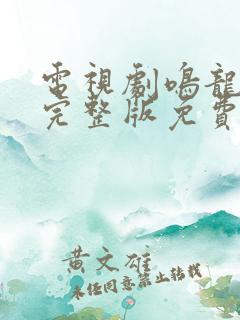 電視劇鳴龍
完整版免費
黃文雄
未經同意禁止轉載